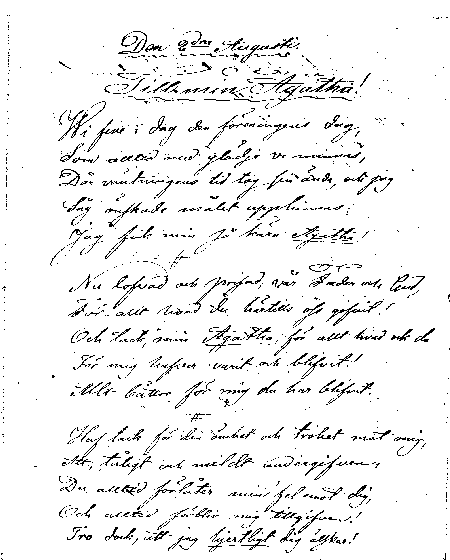 Den 2dra Augusti.
Till min Agatha!
Wi fira i dag den föreningens dag,
Som alltid med glädje vi minnas,
Då väntningens tid tog sin ända, och jag
Såg önskade målet upphinnas;
Jag fick min så kära Agatha!
Nu lofvad och prisad, vår Fader och Gud,
För allt hvad du hittills oss gifvit!
Och tack, min Agatha, för allt hvad och du
För mig hafver varit och blifvit!
Allt bättre för mig du har blifvit.
Haf tack för din ömhet och trohet mot mig,
Att, tåligt och mildt undergifven,
Du alltid förlåter min fel mot dig,
Och alltid förblir mig tillgifven!
Tro dock, att jag hjertligt dig älskar!